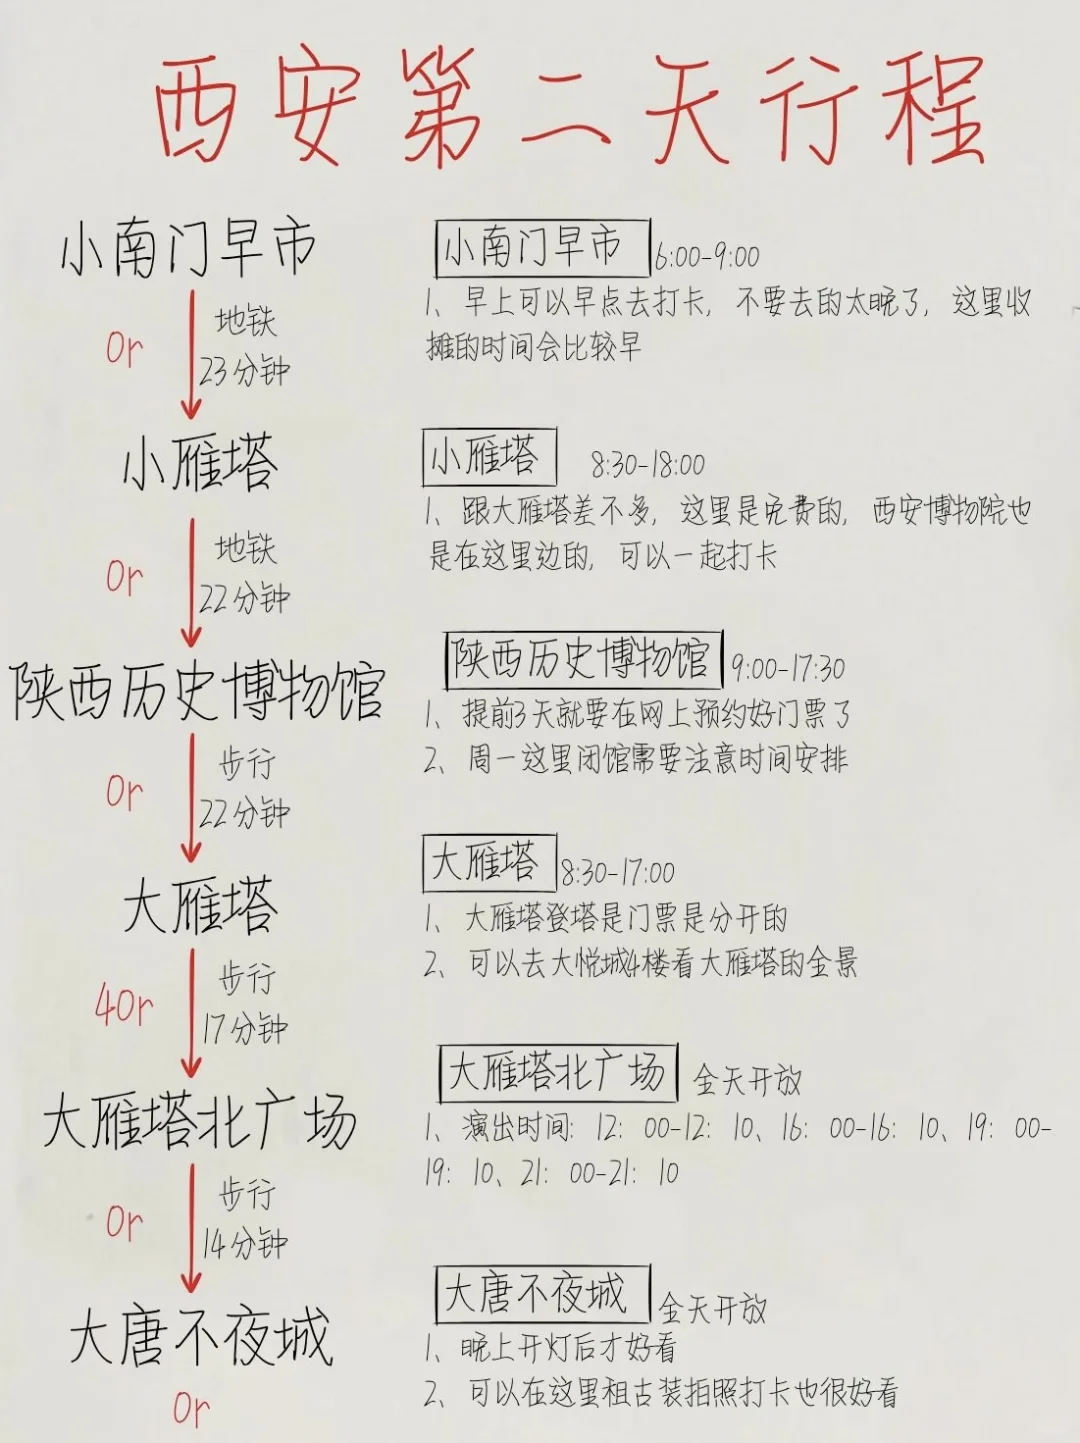 西安第二天行程
小南门早市
0r
地铁
23分钟
小雁塔
0r
地铁
22分钟
陕西历史博物馆
0r
步行
22分钟
大雁塔
40r
步行
17分钟
大雁塔北广场
0r
步行
14分钟
大唐不夜城
0r
小南门早市 6:00-9:00
1、早上可以早点去打卡,不要去的太晚了,这里收
摊的时间会比较早
小雁塔 8:30-18:00
1、跟大雁塔差不多,这里是免费的,西安博物院也
是在这里边的,可以一起打卡
陕西历史博物馆 9:00-17:30
1、提前3天就要在网上预约好门票了
2、周一这里闭馆需要注意时间安排
大雁塔 8:30-17:00
1、大雁塔登塔是门票是分开的
2、可以去大悦城4楼看大雁塔的全景
大雁塔北广场 全天开放
1、演出时间:12:00-12:10、16:00-16:10、19:00-
19:10、21:00-21:10
大唐不夜城 全天开放
1、晚上开灯后才好看
2、可以在这里租古装拍照打卡也很好看